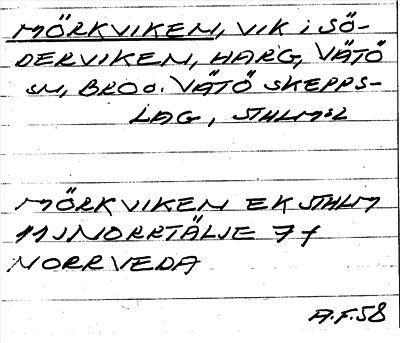 MÖRKVIKEN, VIK i SÖ-
DERVIKEN, HARG, VÄTÖ
SN, BRO O. VÄTÖ SKEPPS-
LAG, STHLM:L
MÖRKVIKEN EK STHLM
11J NORRTÄLJE 7 f
NORRVEDA
A.F.58